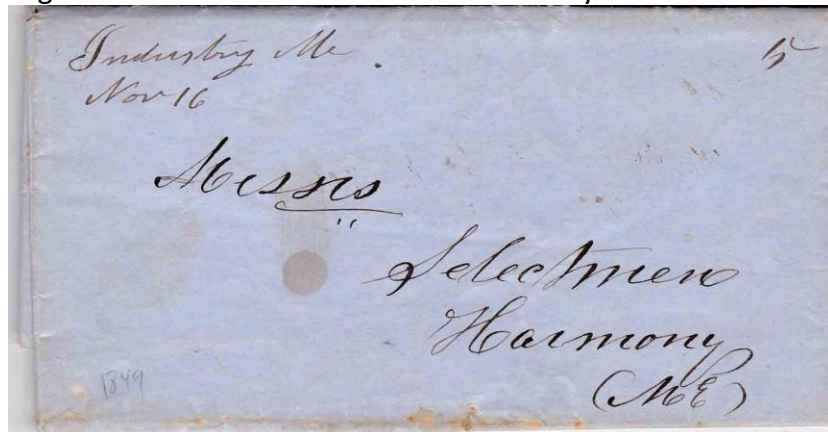 Industry Me
Nov 16
5
Messrs
Selectmen
Harmony
(ME)
1849